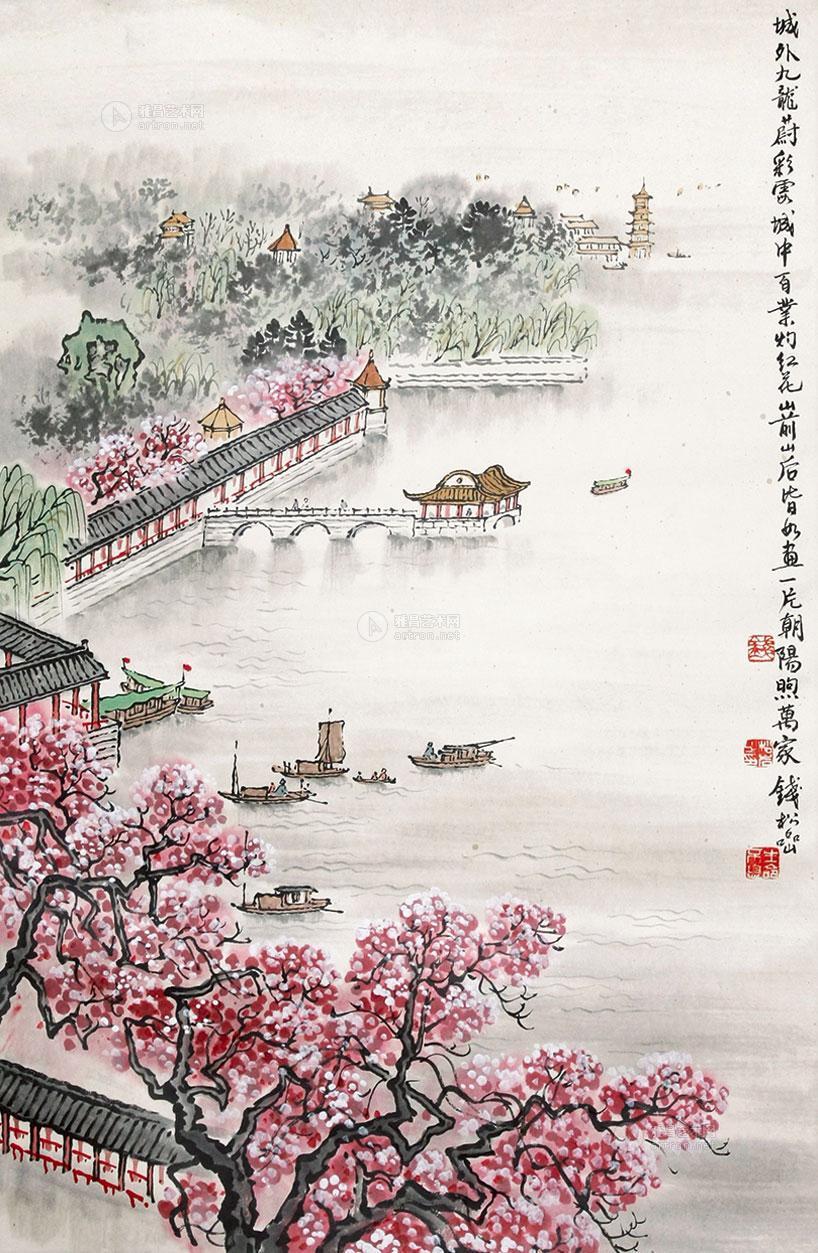 城外九龍蔚彩雲城中百業灼紅花山前山后皆如畫一片朝陽照萬家 錢松喦
雅昌艺术网
artron.net
雅昌艺术网
artron.net
雅昌艺术网
artron.net